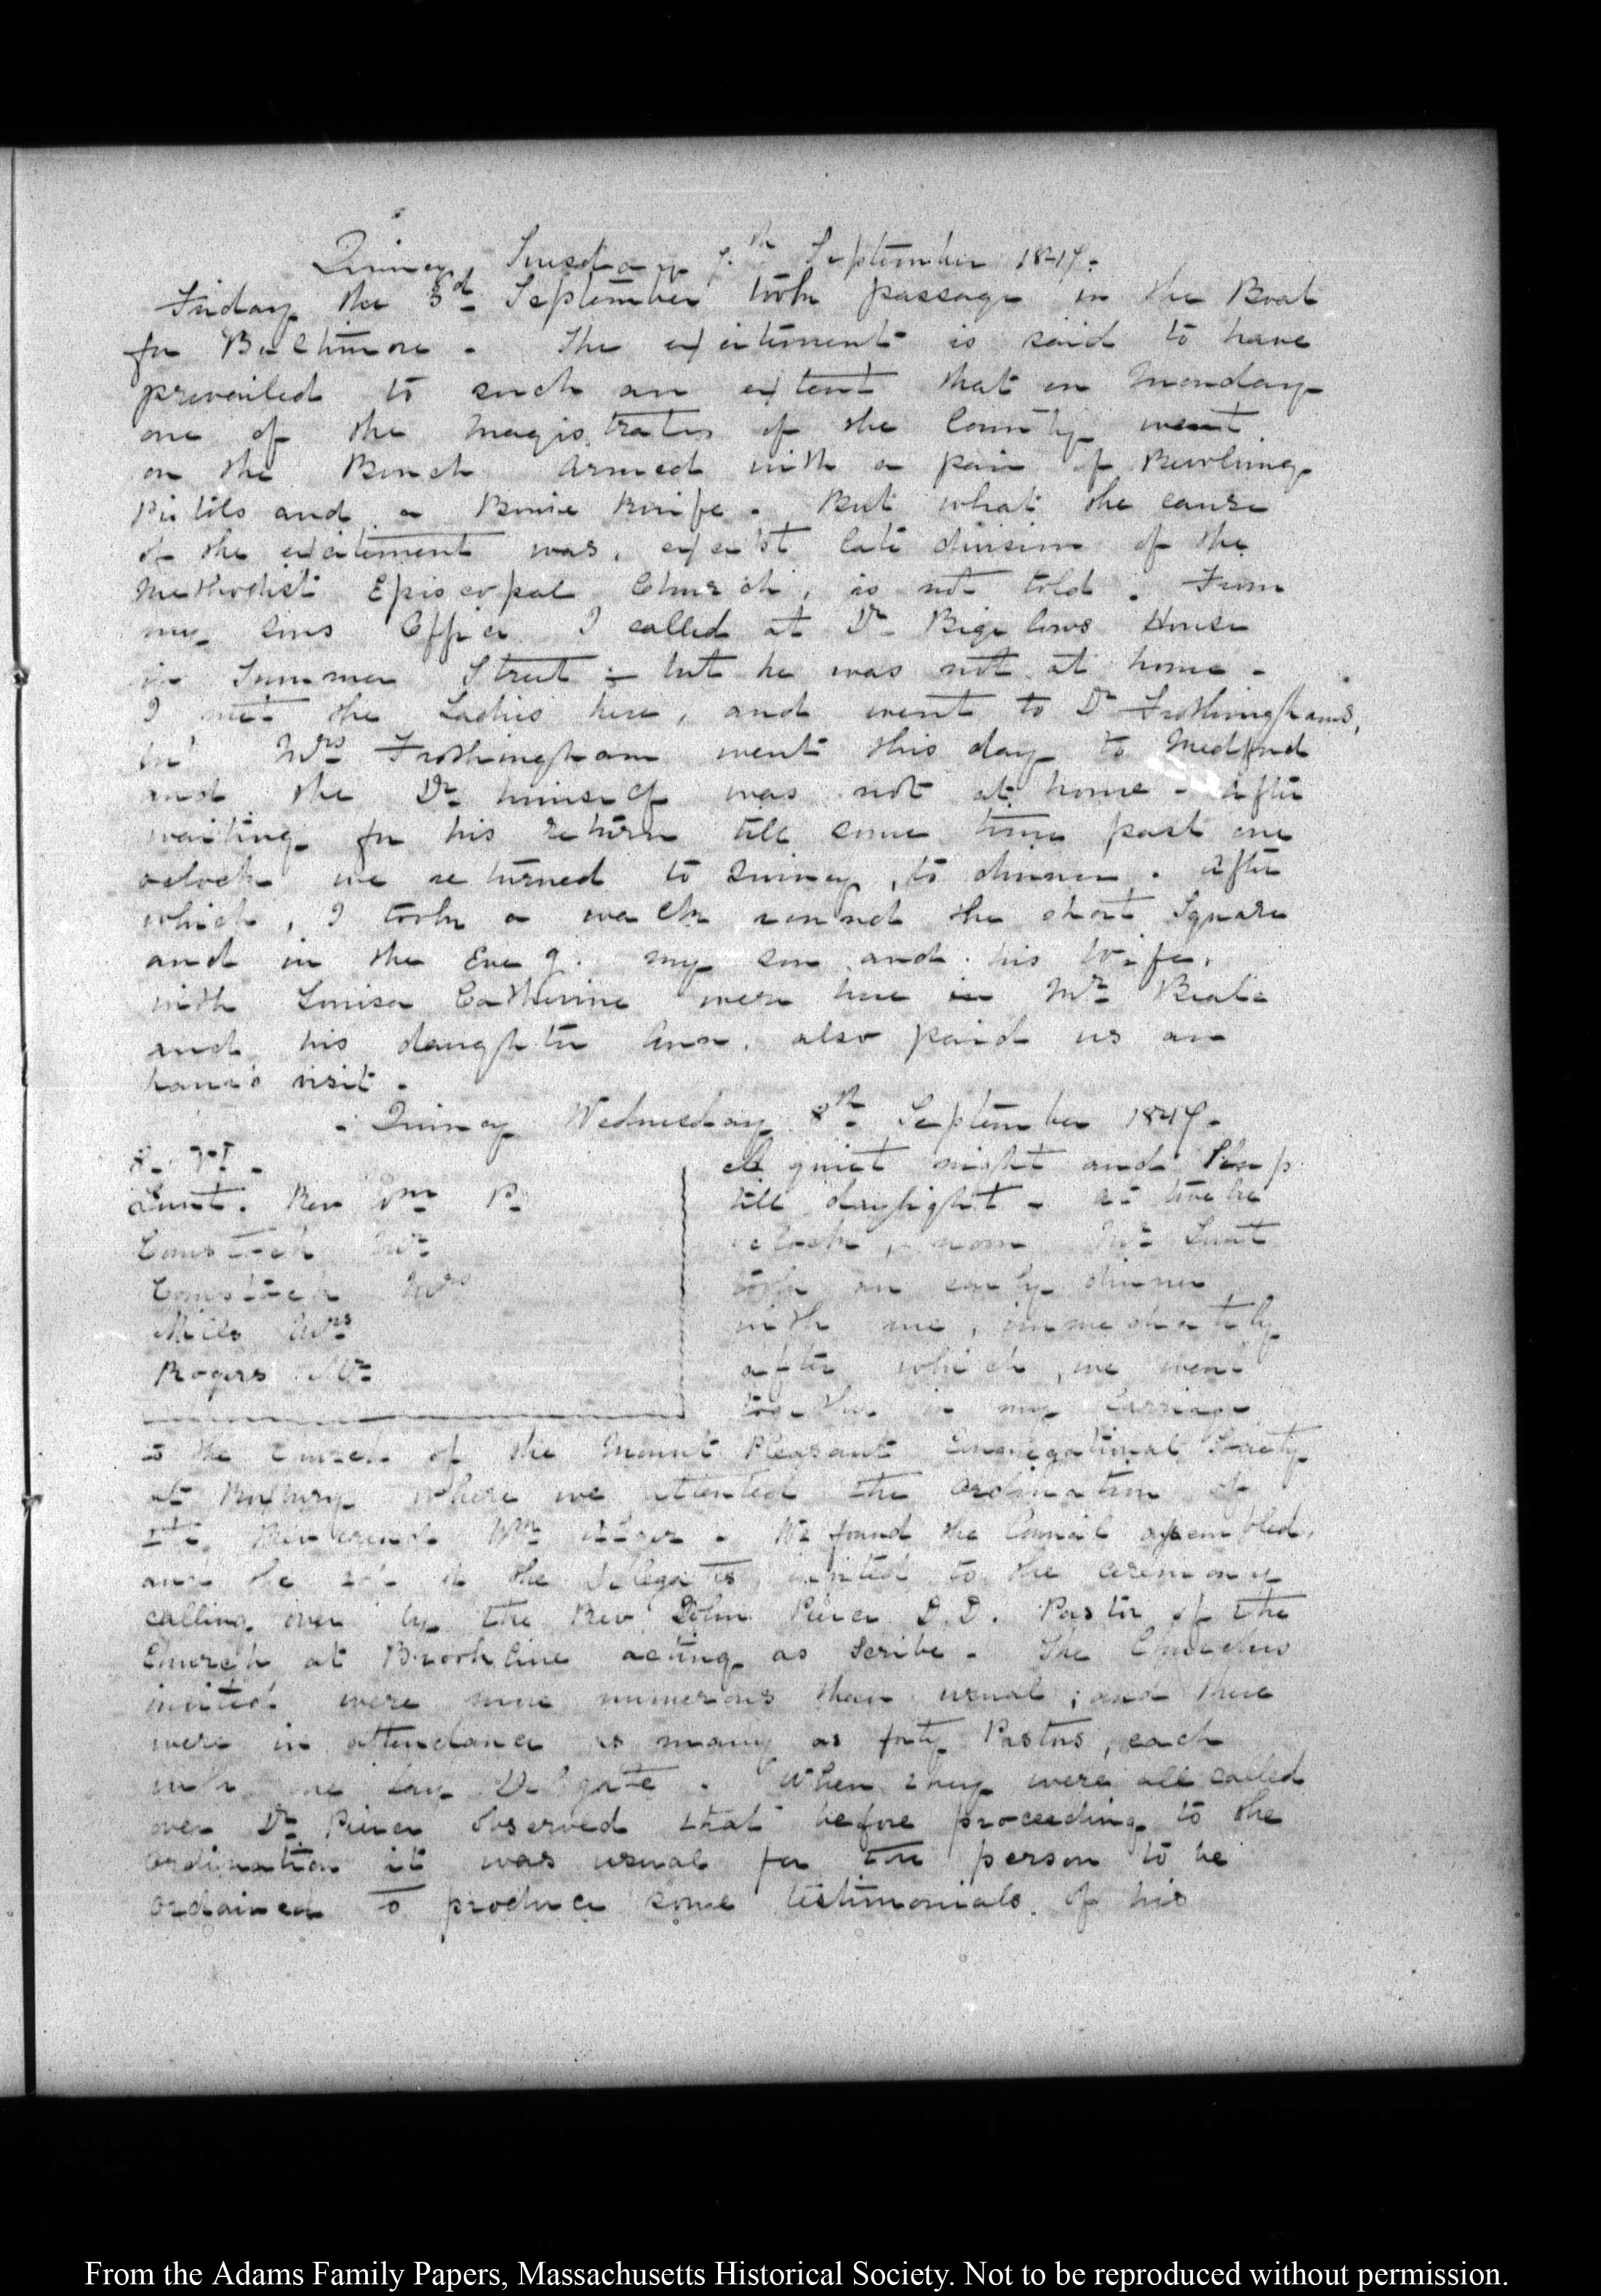 Quincy, Tuesday 7.th September 1847.
Friday the 3d September took passage in the Boat
for Baltimore. The excitement is said to have
prevailed to such an extent that on Monday
one of the Magistrates of the County went
on the Bench armed with a pair of Revolving
Pistols and a Bowie Knife. But what the cause
of the excitement was, except late division of the
Methodist Episcopal Church, is not told. From
my sons Office I called at Dr Bigelows House
in Summer Street - but he was not at home -
I met the Ladies here, and went to Dr Frothinghams,
Mrs Frothingham went this day to Medford
and the Dr himself was not at home - after
waiting for his return till some time past one
oclock we returned to Quincy, to dinner. After
which, I took a walk round the short Square
and in the Eveg. my son and his Wife,
with Louisa Catherine were here Mr Beale
and his daughter Ann, also paid us an
hour's visit.
Quincy Wednesday 8th September 1847.
Lunt. Rev Wm P.
Comstock Mr
Comstock Mrs
Miles Mrs
Rogers Mr
A quiet night and Sleep
till daylight - At twelve
oclock, noon Mr Lunt
took an early dinner
with me, immediately
after which, we went
together in my Carriage
to the Church of the Mount Pleasant Congregational Society
at Roxbury where we attended the Ordination of
the Reverend Wm Alger. We found the Council assembled,
and the of the Delegates invited to the ceremony
calling over by the Rev John Pierce D.D. Pastor of the
Church at Brookline acting as Scribe. The Churches
invited were more numerous than usual; and there
were in attendance as many as forty Pastors, each
with one lay Delegate. When they were all called
over Dr Pierce observed that before proceeding to the
Ordination it was usual for the person to be
ordained to produce some testimonials of his
From the Adams Family Papers, Massachusetts Historical Society. Not to be reproduced without permission.